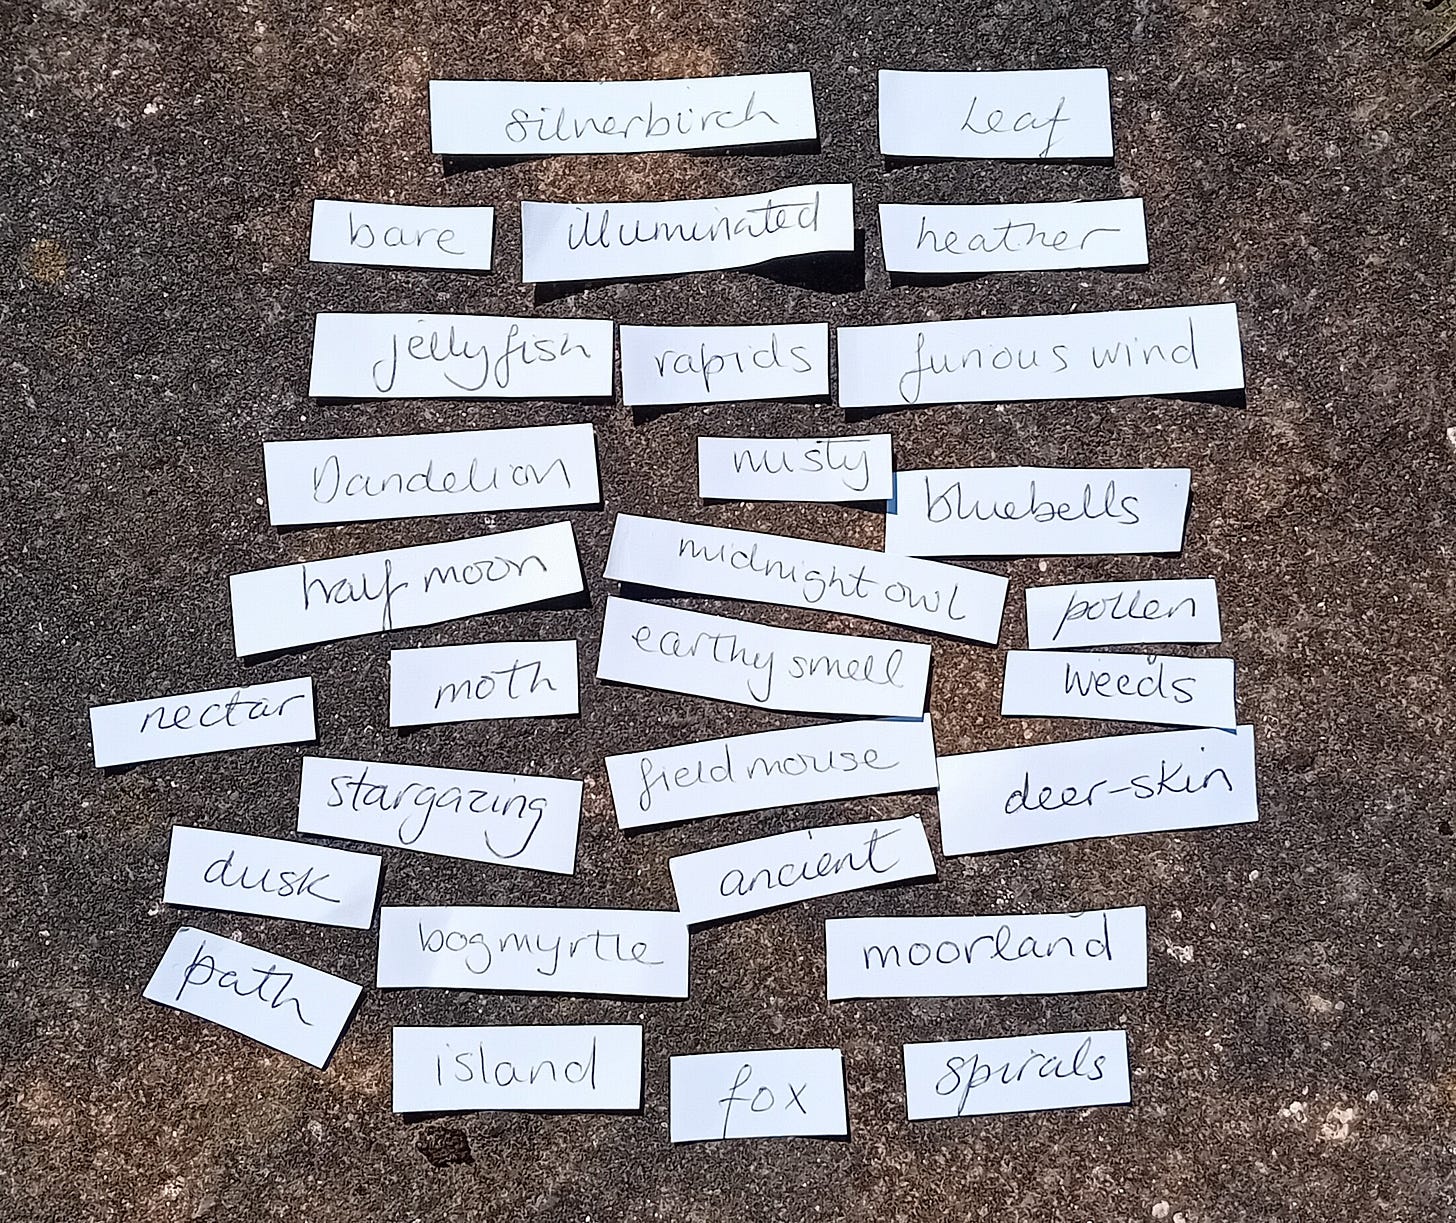 silverbirch
Leaf
bare
illuminated
heather
jellyfish
rapids
furious wind
Dandelion
rusty
bluebells
half moon
midnight owl
pollen
earthy smell
moth
weeds
nectar
field mouse
deer-skin
stargazing
dusk
ancient
bog myrtle
moorland
path
island
fox
spirals